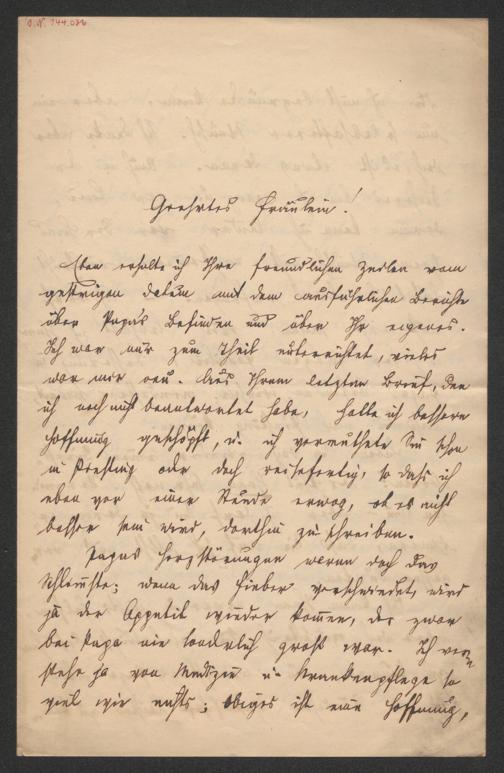 I.N. 144.086
Geehrtes Fräulein!
Eben erhalte ich Ihre freundlichen Zeilen vom
gestrigen Datum mit dem ausführlichen Berichte
über Papa's Befinden und über Ihr eigenes.
Ich war nur zum Theil unterrichtet, vieles
war mir neu. Aus Ihrem letzten Brief, den
ich noch nicht beantwortet habe, hatte ich bessere
Hoffnung geschöpft, u. ich vermuthete Sie schon
in Piesting oder doch reisefertig, so dass ich
eben vor einer Stunde erwog, ob es nicht
besser sein wird, dorthin zu schreiben.
Papas Herzstörungen waren doch das
Schlimmste; wenn das Fieber verschwindet, wird
ja der Appetit wieder kommen, der zwar
bei Papa nie sonderlich groß war. Ich ver-
stehe ja von Medizin u. Krankenpflege so
viel wie nichts; obiges ist eine Hoffnung,